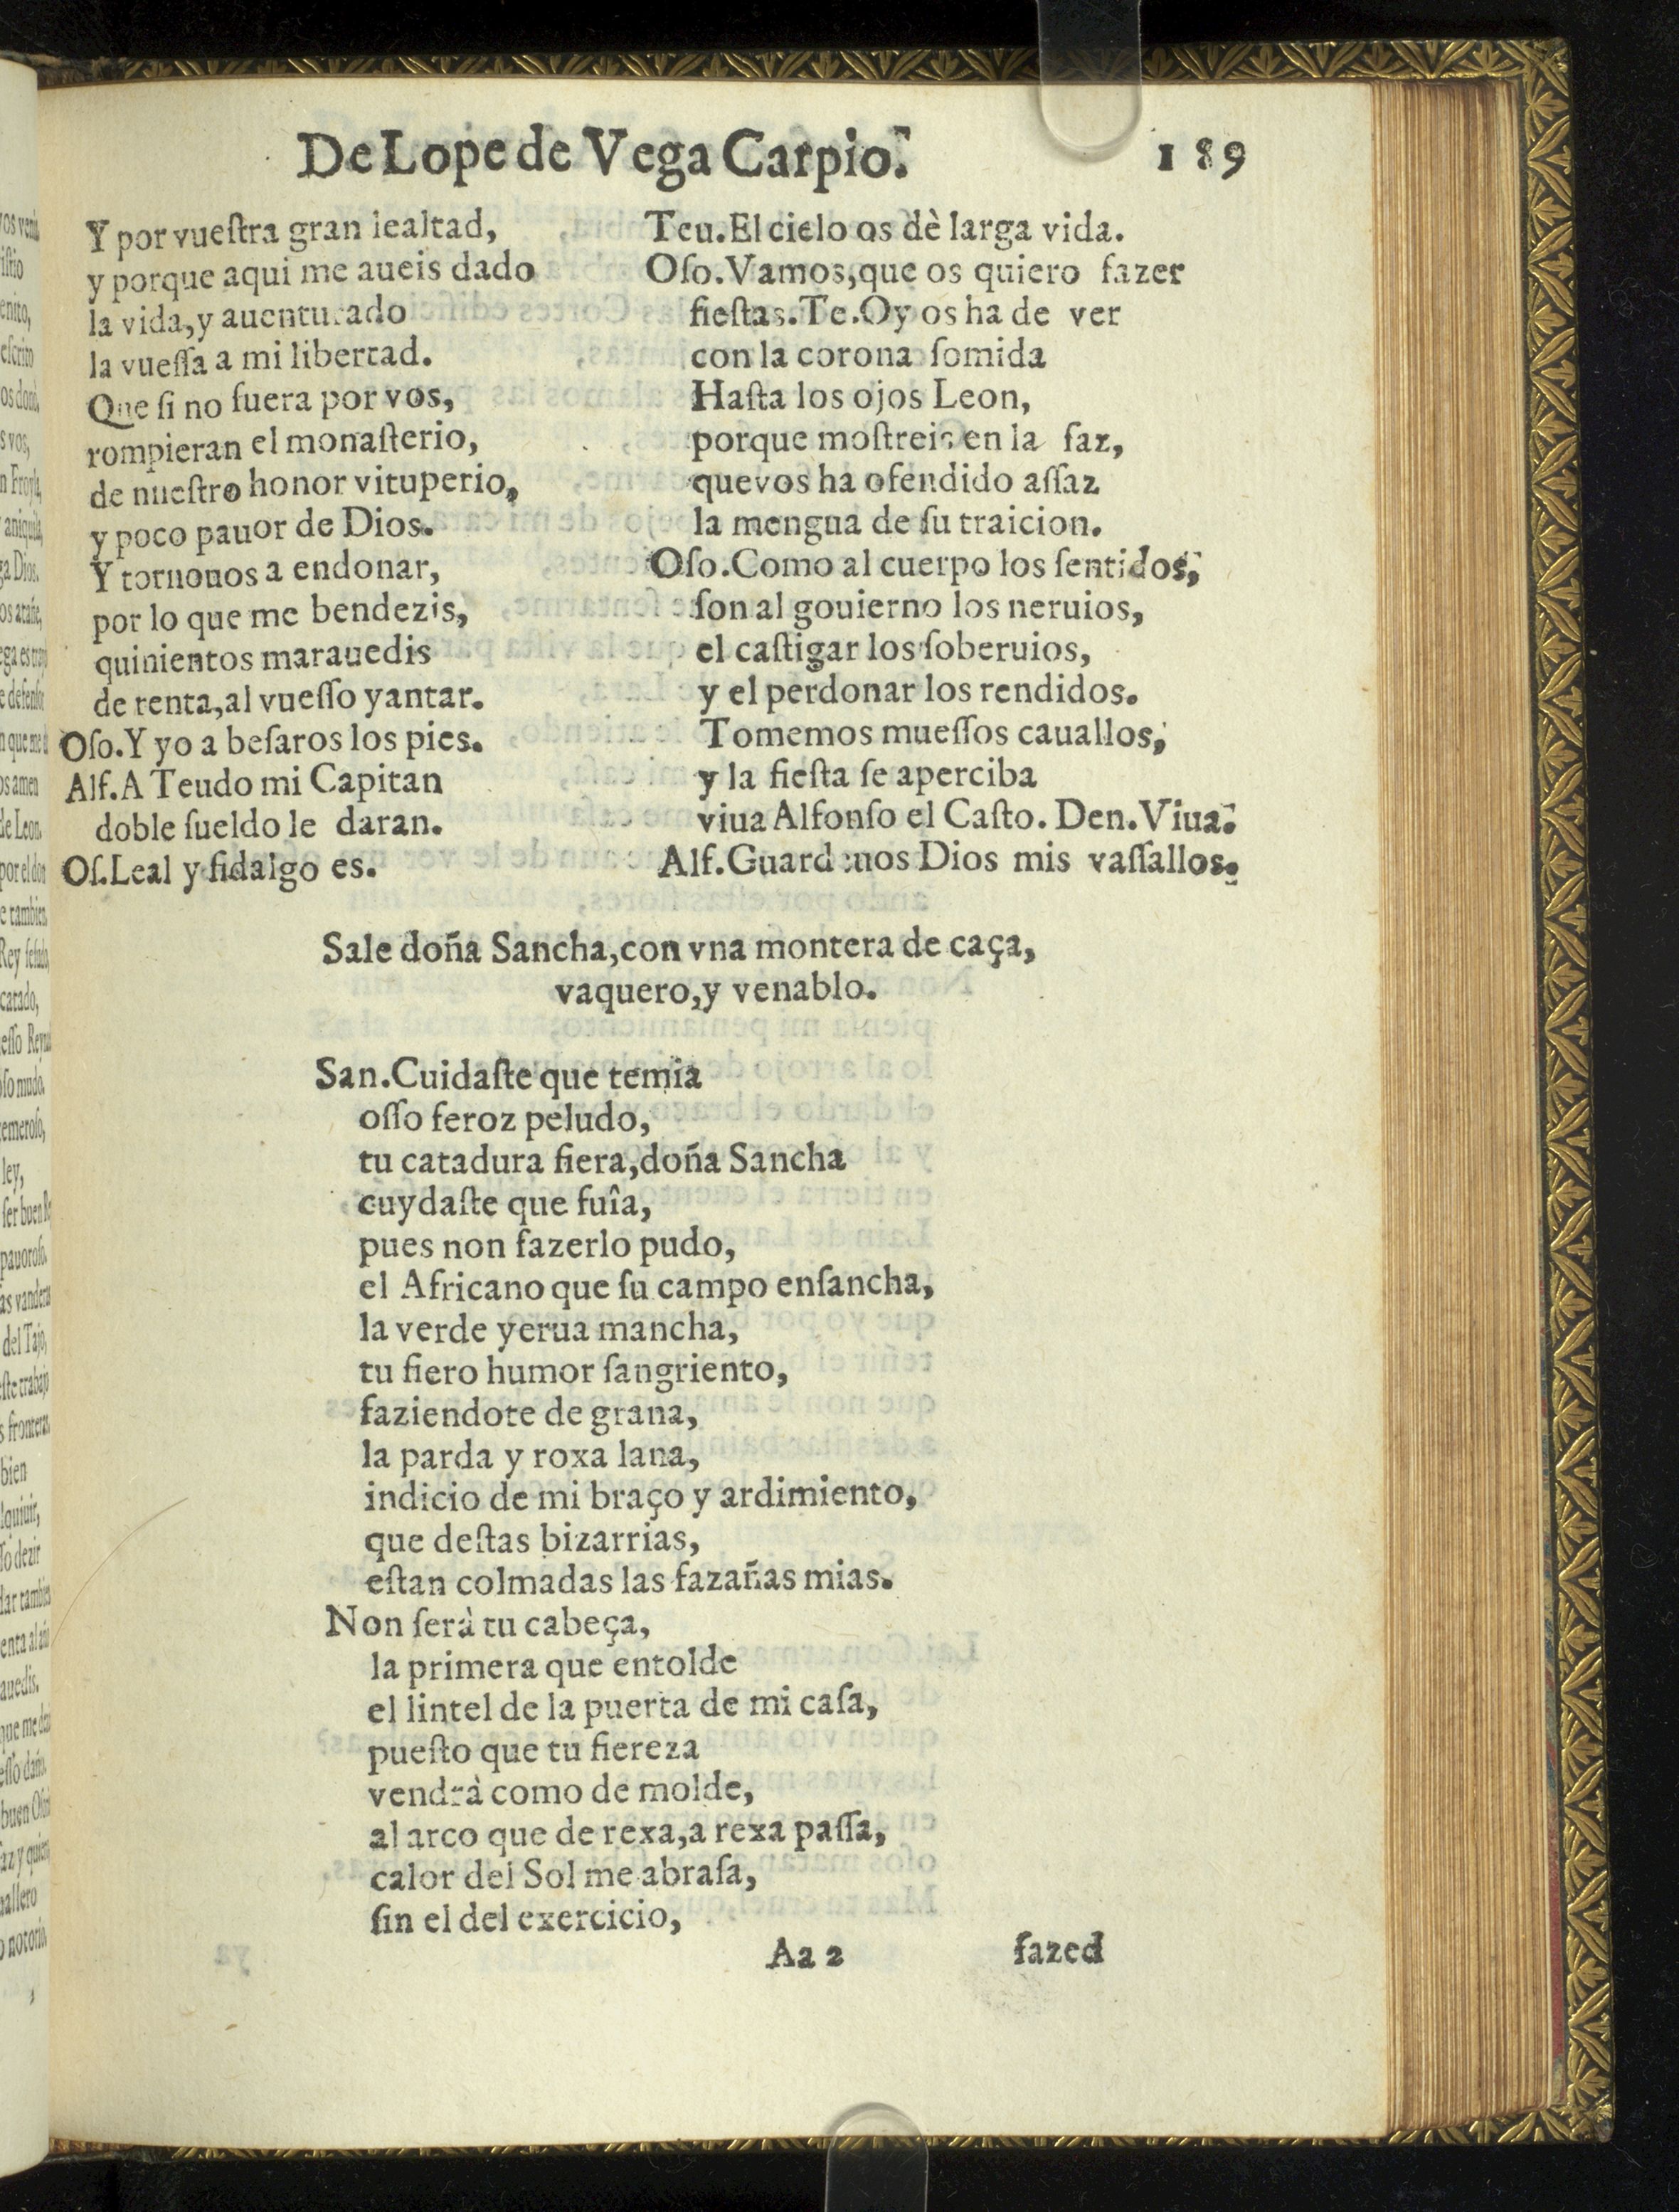 De Lope de Vega Carpio. 189
Y por vueſtra gran lealtad,
y porque aqui me aueis dado
la vida, y auenturado
la vueſſa a mi libertad.
Que ſi no fuera por vos,
rompieran el monaſterio,
de nueſtro honor vituperio,
y poco pauor de Dios.
Y tornouos a endonar,
por lo que me bendezis,
quinientos marauedis
de renta, al vueſſo yantar.
Oſo. Y yo a beſaros los pies.
Alf. A Teudo mi Capitan
doble ſueldo le daran.
Oſ. Leal y fidalgo es.
Teu. El cielo os dè larga vida.
Oſo. Vamos, que os quiero fazer
fieſtas. Te. Oy os ha de ver
con la corona ſomida
Haſta los ojos Leon,
porque moſtreis en la faz,
que vos ha ofendido aſſaz
la mengua de ſu traicion.
Oſo. Como al cuerpo los ſentidos,
ſon al gouierno los neruios,
el caſtigar los ſoberuios,
y el perdonar los rendidos.
Tomemos mueſſos cauallos,
y la fieſta ſe aperciba
viua Alfonſo el Caſto. Den. Viua.
Alf. Guardenos Dios mis vaſſallos.
Sale doña Sancha, con vna montera de caça,
vaquero, y venablo.
San. Cuidaſte que temia
oſſo feroz peludo,
tu catadura fiera, doña Sancha
cuydaſte que fuîa,
pues non fazerlo pudo,
el Africano que ſu campo enſancha,
la verde yerua mancha,
tu fiero humor ſangriento,
faziendote de grana,
la parda y roxa lana,
indicio de mi braço y ardimiento,
que deſtas bizarrias,
eſtan colmadas las fazañas mias.
Non ſerà tu cabeça,
la primera que entolde
el lintel de la puerta de mi caſa,
pueſto que tu fiereza
vendrà como de molde,
al arco que de rexa, a rexa paſſa,
calor del Sol me abraſa,
ſin el del exercicio,
Aa 2 fazed